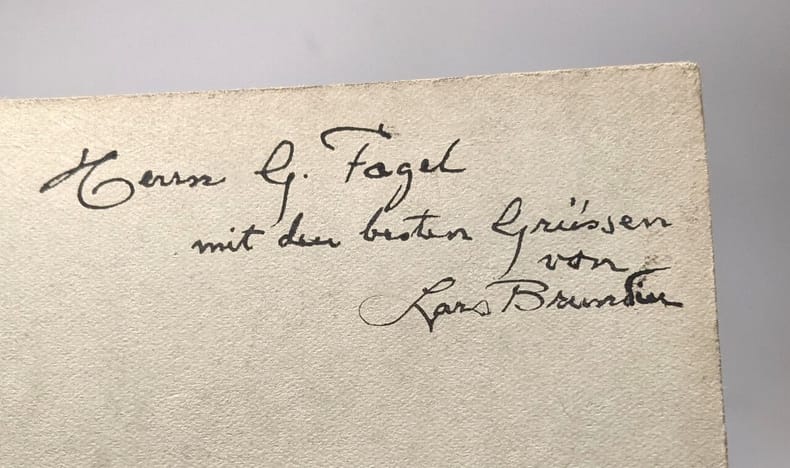 Herrn G. Fagel
mit den besten Grüssen
von
Lars Brundin